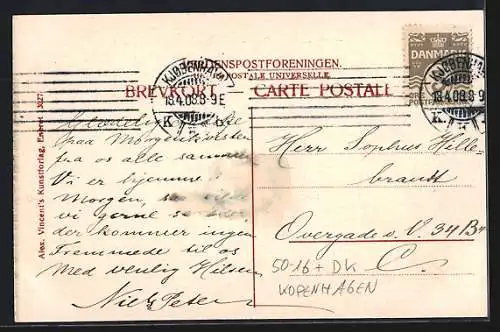 VERDENSPOSTFORENINGEN.
POSTALE UNIVERSELLE
BREVKORT. CARTE POSTALE
KJØBENHAVN
18.4.08.8-9E
K
KJØBENHAVN
18.4.08.8-9
K
DANMARK
Alex. Vincent's Kunstforlag, Eneret
paa
fra os alle sammen
Vi er hjemme i
Morgen, så
vi gerne se
der kommer ingen
Fremmede til os
Med venlig Hilsen
Niels Peter
Herr Sophus Hille-
brandt
Overgade o. V. 34 B
C.
50-16 + DK
KOPENHAGEN